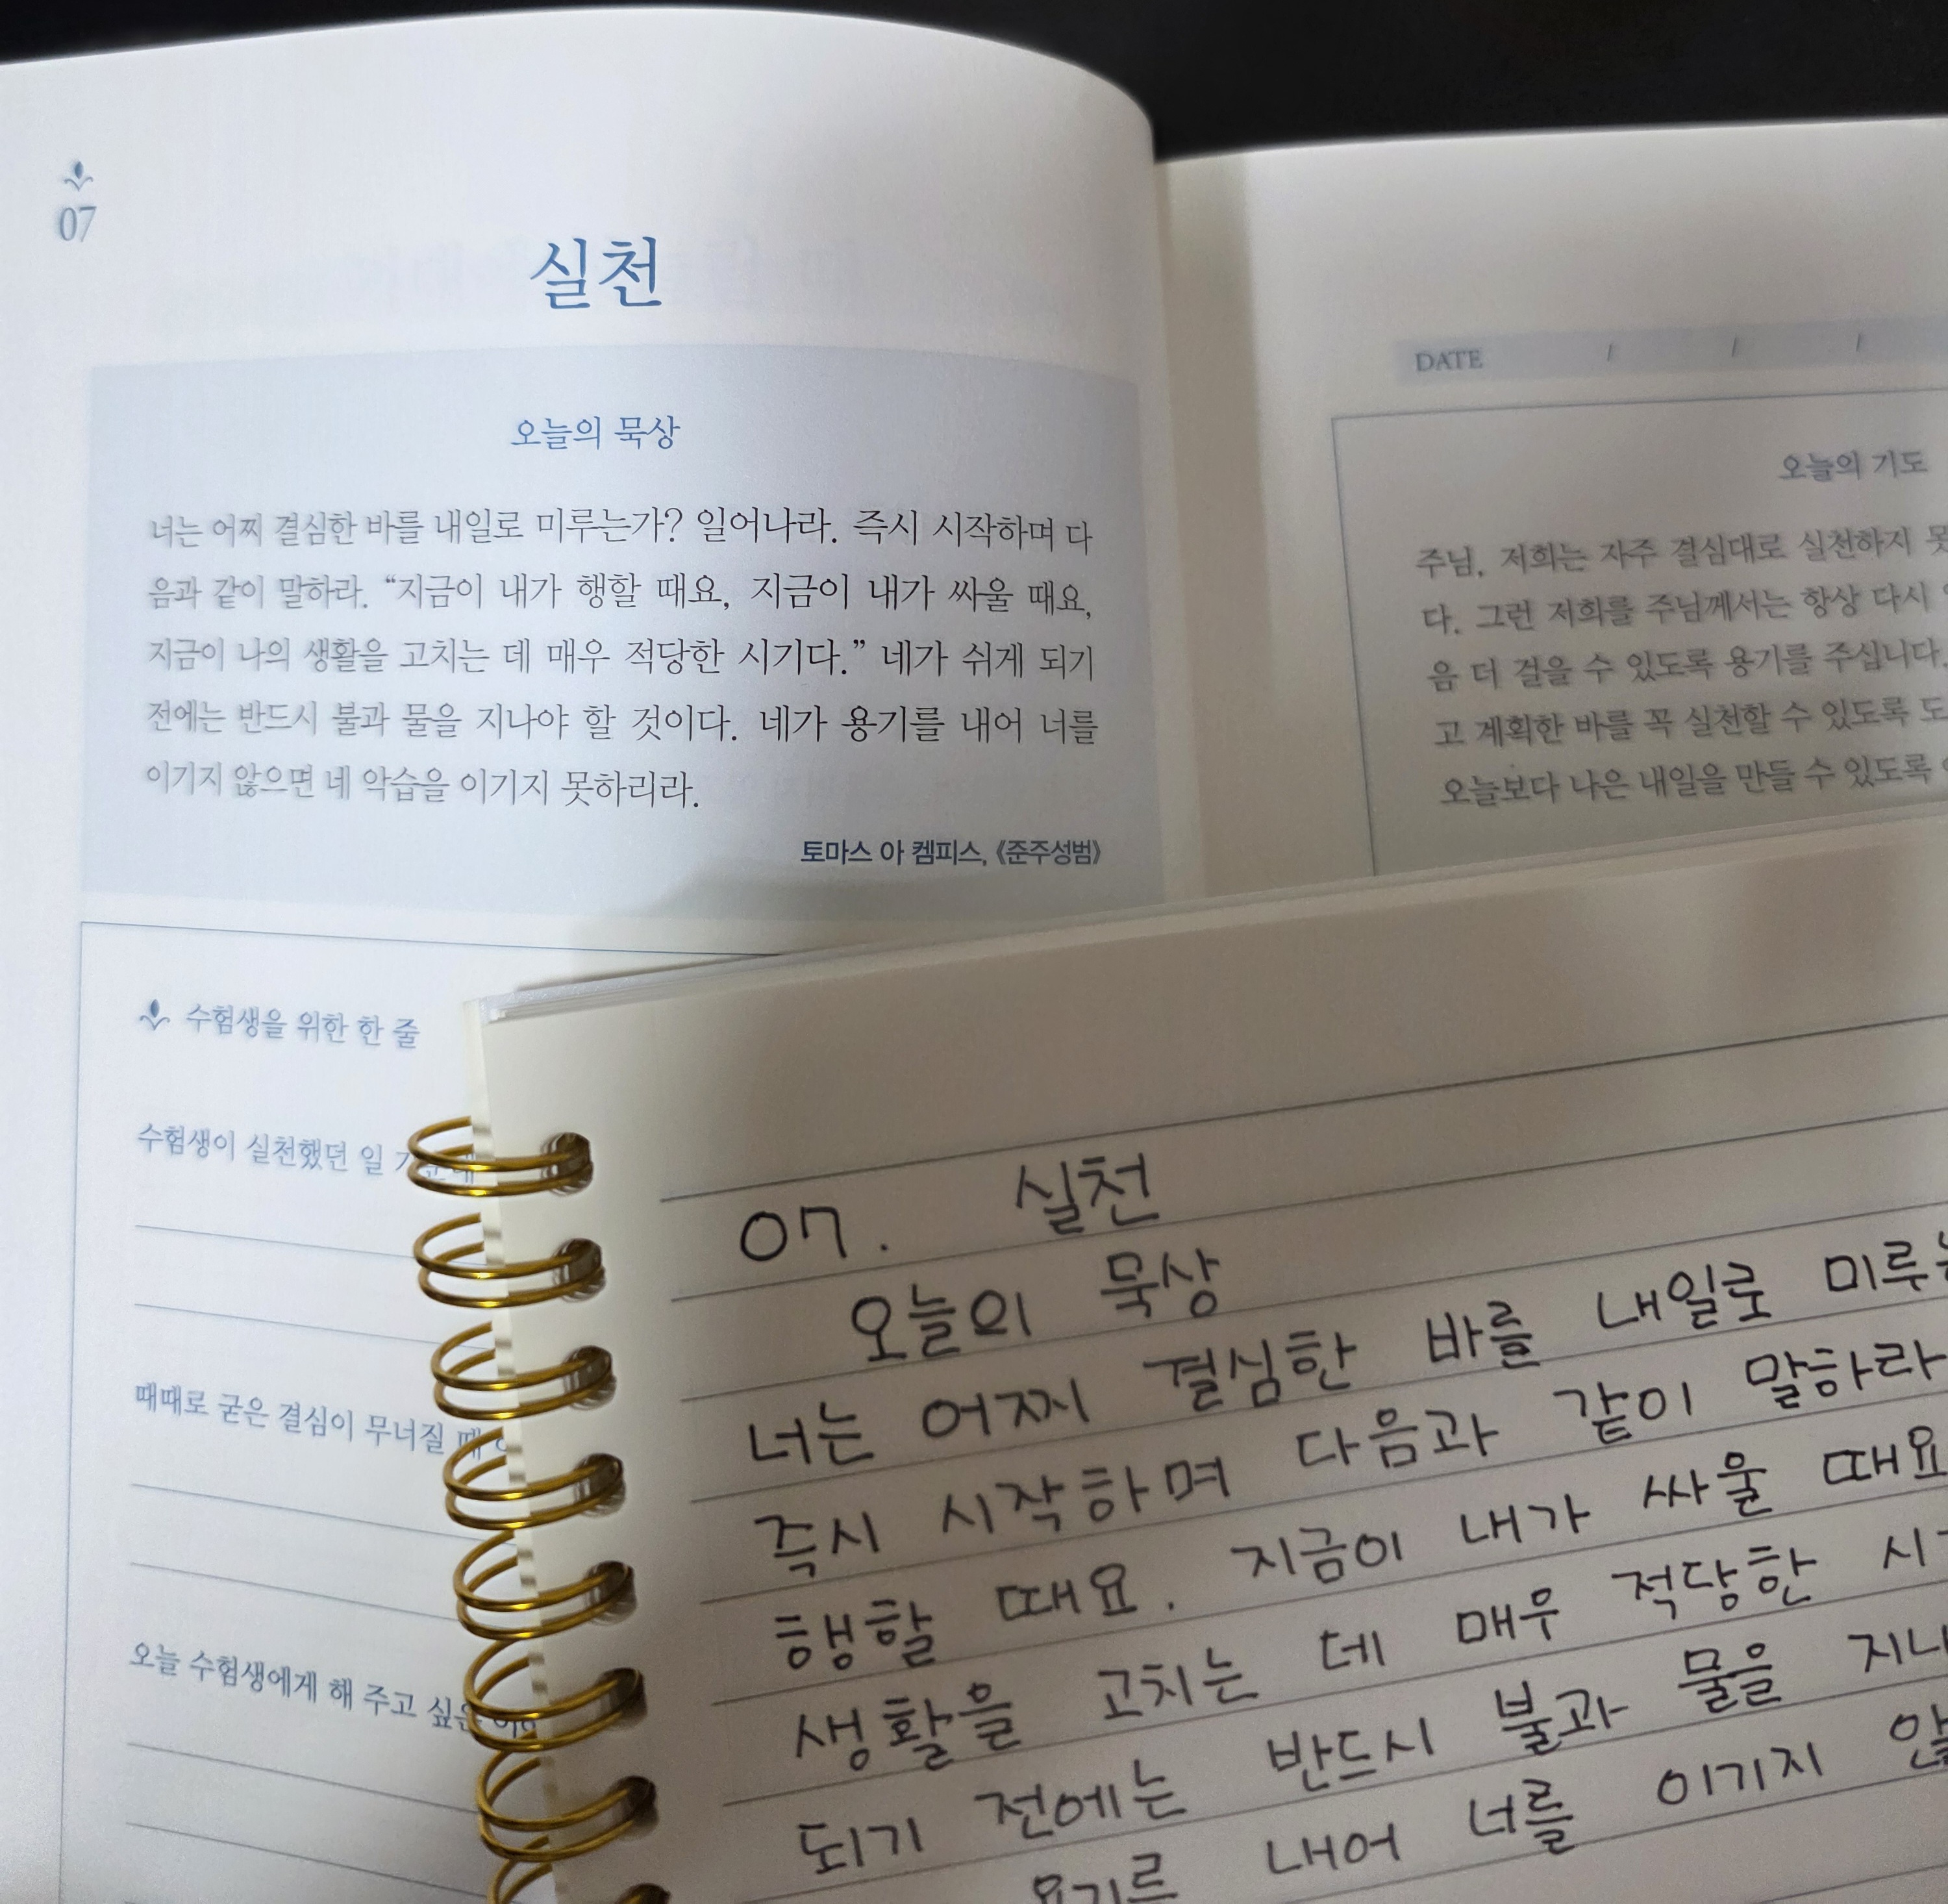 07
실천
오늘의 묵상
너는 어찌 결심한 바를 내일로 미루는가? 일어나라. 즉시 시작하며 다
음과 같이 말하라. “지금이 내가 행할 때요, 지금이 내가 싸울 때요,
지금이 나의 생활을 고치는 데 매우 적당한 시기다.” 네가 쉬게 되기
전에는 반드시 불과 물을 지나야 할 것이다. 네가 용기를 내어 너를
이기지 않으면 네 악습을 이기지 못하리라.
토마스 아 켐피스, 《준주성범》
수험생을 위한 한 줄
수험생이 실천했던 일
때때로 굳은 결심이 무너질 때
오늘 수험생에게 해 주고 싶은
DATE / / /
오늘의 기도
주님, 저희는 자주 결심대로 실천하지
다. 그런 저희를 주님께서는 항상 다시
음 더 걸을 수 있도록 용기를 주십니다.
고 계획한 바를 꼭 실천할 수 있도록
오늘보다 나은 내일을 만들 수 있도록
07. 실천
오늘의 묵상
너는 어찌 결심한 바를 내일로 미루
즉시 시작하며 다음과 같이 말하라
행할 때요. 지금이 내가 싸울 때요
생활을 고치는 데 매우 적당한 시
되기 전에는 반드시 불과 물을 지나
내어 너를 이기지